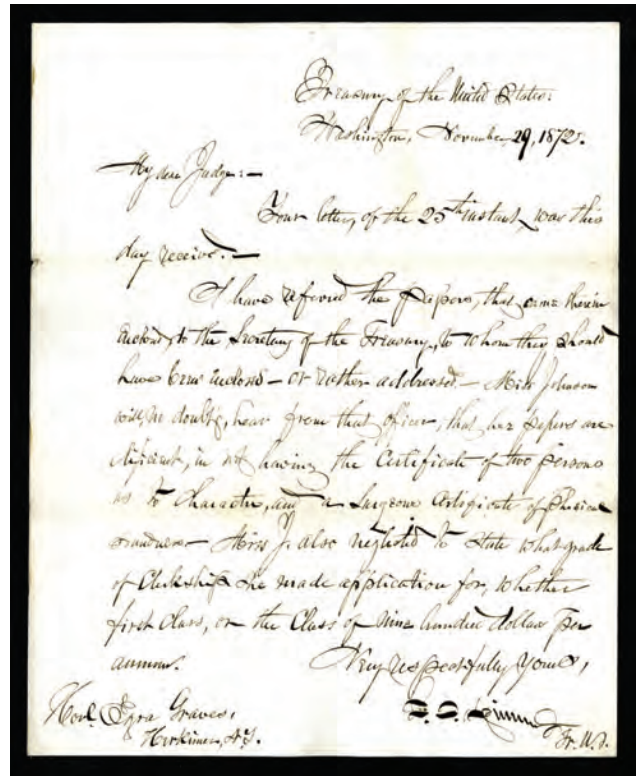 Treasury of the United States:
Washington, November 29, 1872.
My dear Judge:—
Your letter, of the 25th instant, was this
day received.—
I have referred the papers, that came therein
inclosed, to the Secretary of the Treasury, to whom they should
have been inclosed — or rather addressed. — Miss Johnson
will, no doubt, hear from that officer, that her papers are
deficient, in not having the Certificate of two persons
as to Character, and a Surgeons Certificate of Physical
soundness — Miss J. also neglected to state what grade
of Clerkship she made application for, whether
first Class, or the Class of nine hundred dollars per
annum.
Very respectfully yours,
Hon. Ezra Graves,
Herkimer, N.Y.
Tr. U.S.